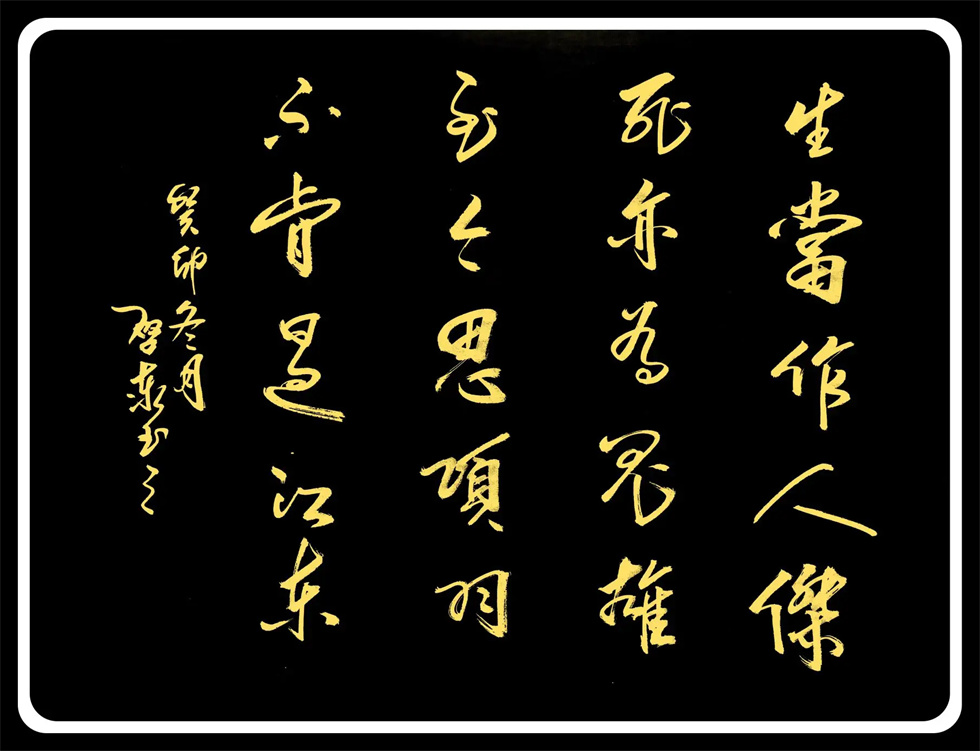 生當作人傑
死亦為鬼雄
至今思項羽
不肯過江东
癸卯冬月